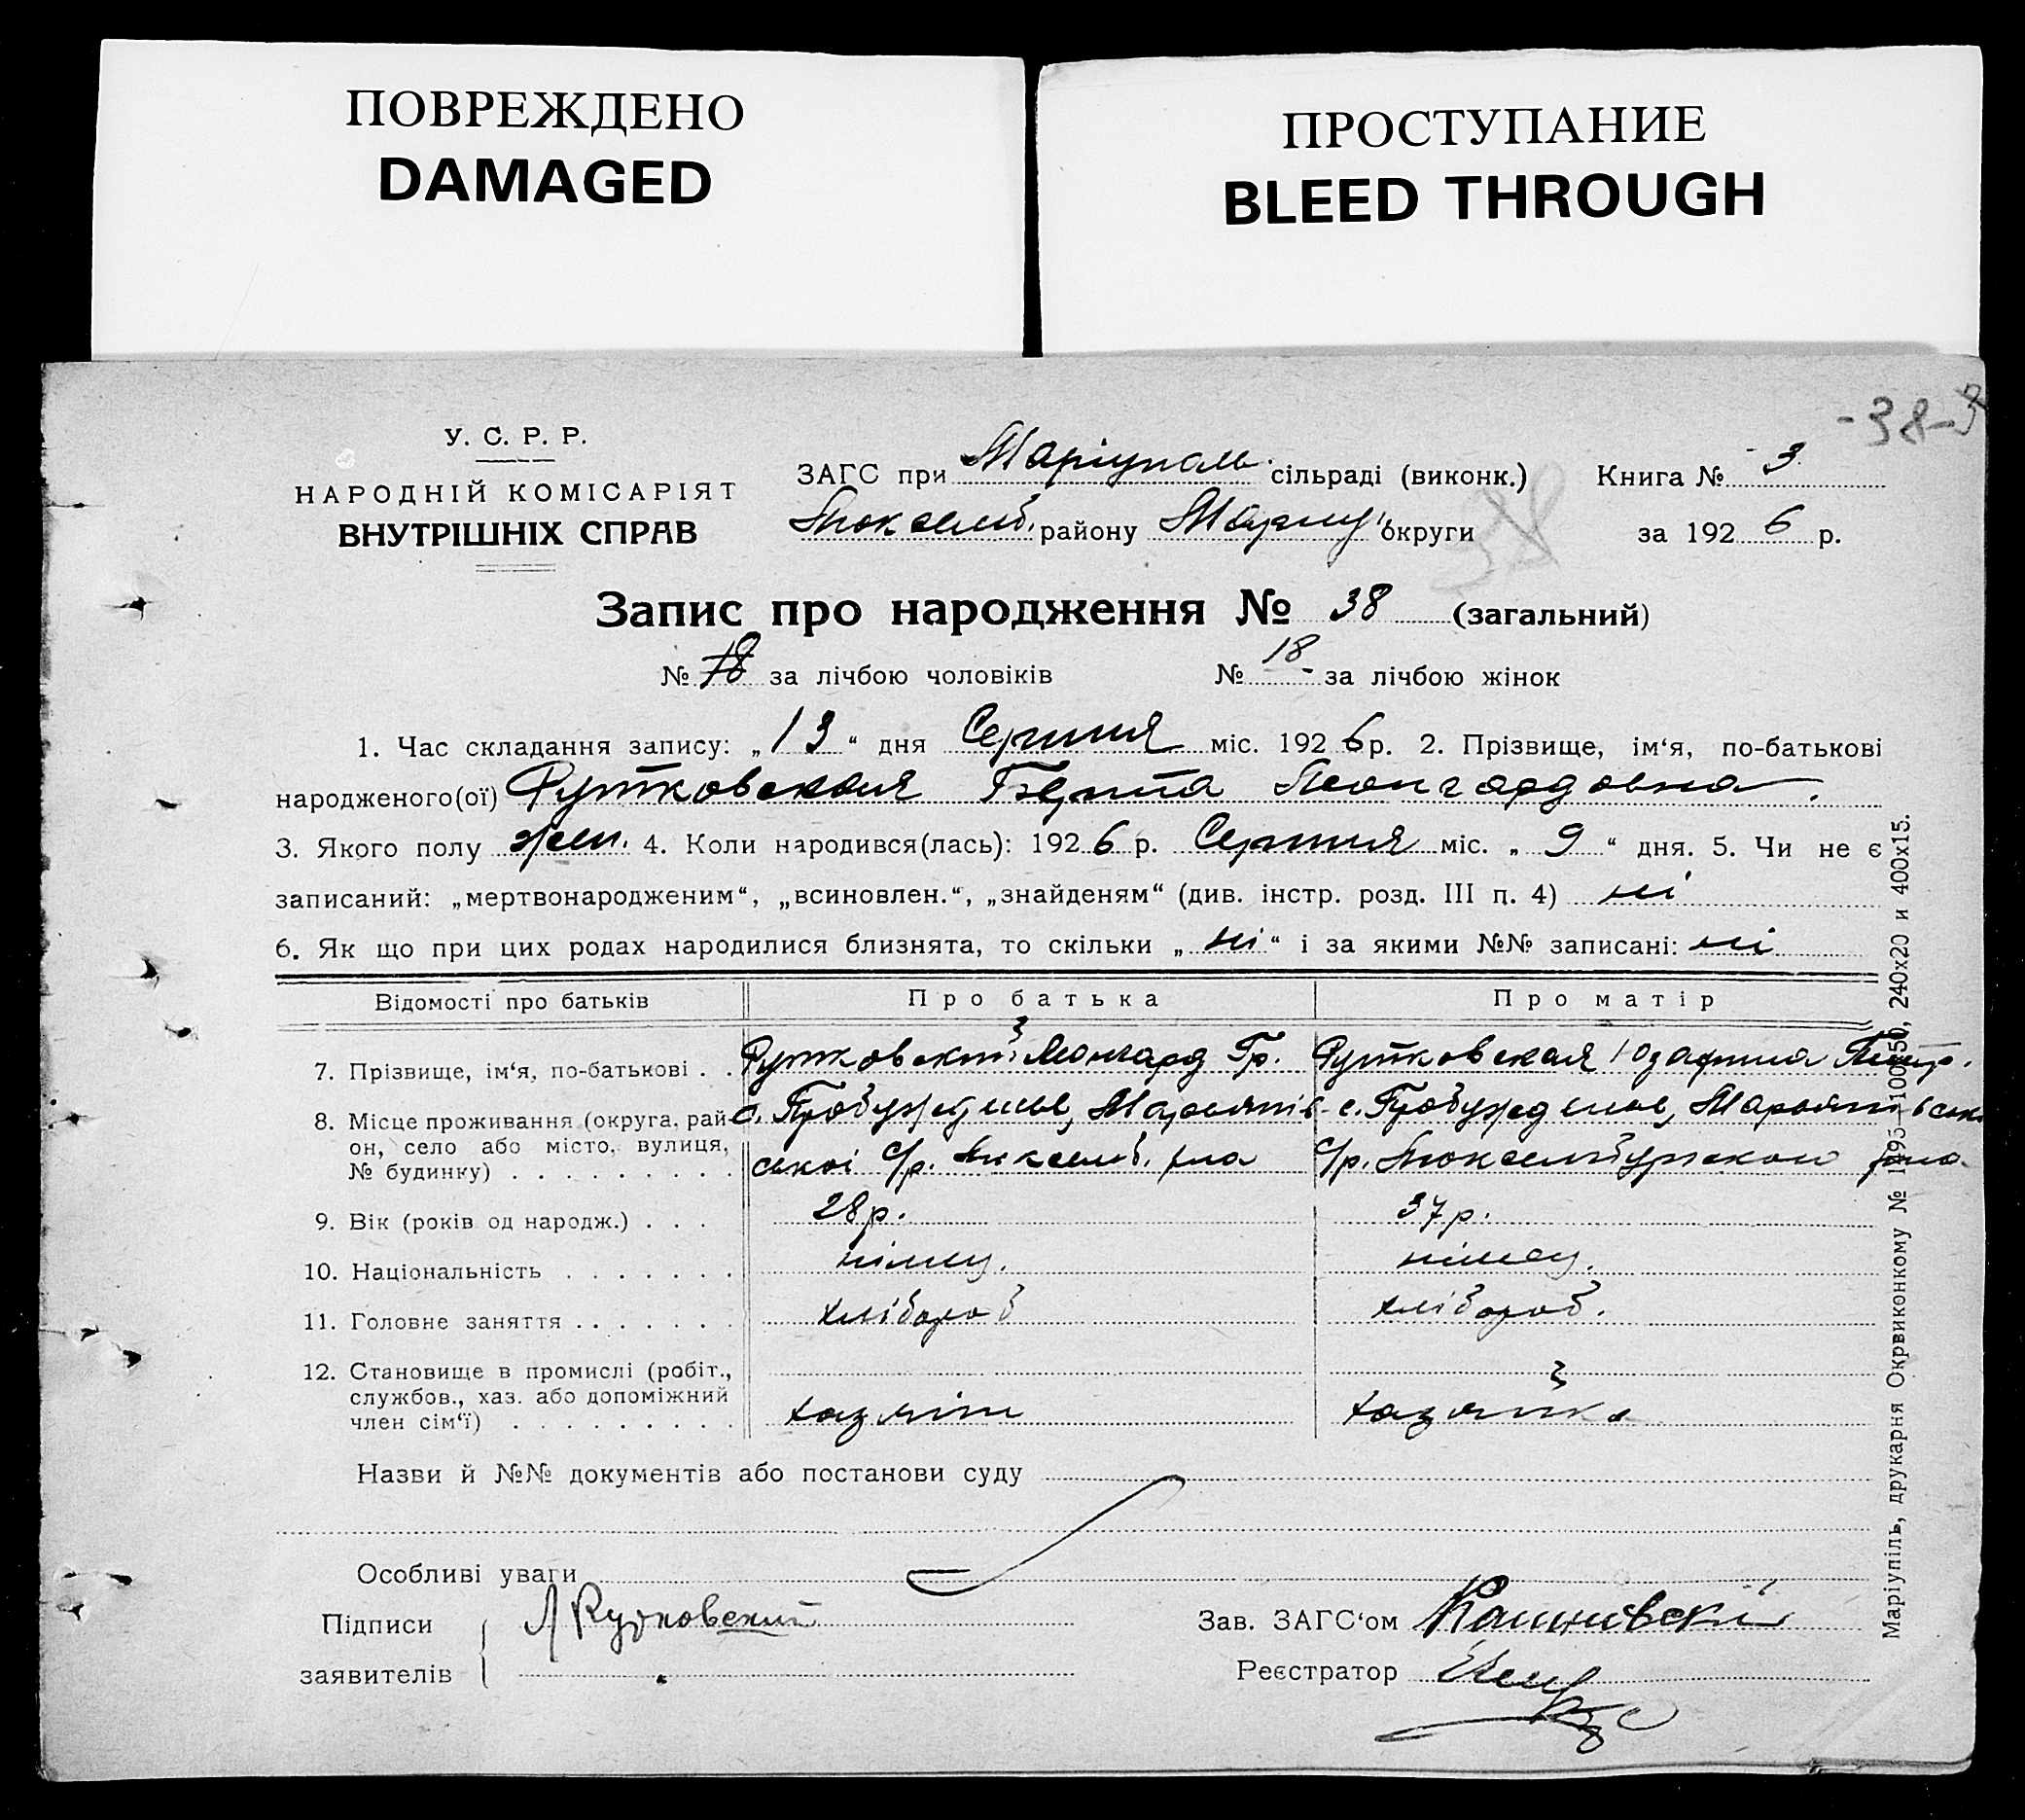 ПОВРЕЖДЕНО
DAMAGED
ПРОСТУПАНИЕ
BLEED THROUGH
-38-
У. С. Р. Р.
НАРОДНІЙ КОМІСАРІЯТ
ВНУТРІШНІХ СПРАВ
ЗАГС при Маріуполь сільраді (виконк.)
Люксемб. району Маріуп. округи
Книга № 3
за 1926 р.
38
Запис про народження № 38 (загальний)
№ 18 за лічбою чоловіків № 18 за лічбою жінок
1. Час складання запису: „13“ дня Серпня міс. 1926 р. 2. Прізвище, ім‘я, по-батькові
народженого(ої) Рутковская Берта Леонгардовна.
3. Якого полу жен. 4. Коли народився(лась): 1926 р. Серпня міс. „9“ дня. 5. Чи не є
записаний: „мертвонародженим“, „всиновлен.“, „знайденям“ (див. інстр. розд. III п. 4) ні
6. Як що при цих родах народилися близнята, то скільки „ні“ і за якими №№ записані: ні
Відомості про батьків Про батька Про матір
7. Прізвище, ім‘я, по-батькові . . Рутковский Леонгард Гр. Рутковская Юзафина
8. Місце проживання (округа, рай-
он, село або місто, вулиця,
№ будинку) . . . . . . . . .
с. Пробужденье, Мар
ської с/р. Люксемб. р-на
с. Пробужденье, Мар
с/р. Люксембургского р-на
9. Вік (років од народж.) . . . 28 р. 37 р.
10. Національність . . . . . . . німец. німец.
11. Головне заняття . . . . . . . хлібороб хлібороб.
12. Становище в промислі (робіт.,
службов., хаз. або допоміжний
член сім‘ї) . . . . . . . . . хазяін хазяйка
Назви й №№ документів або постанови суду
Особливі уваги
Підписи
заявителів
Л Рутковский
Зав. ЗАГС‘ом
Реєстратор
Маріупіль, друкарня Окрвиконкому № 1195—100×50, 240х20 и 400х15.